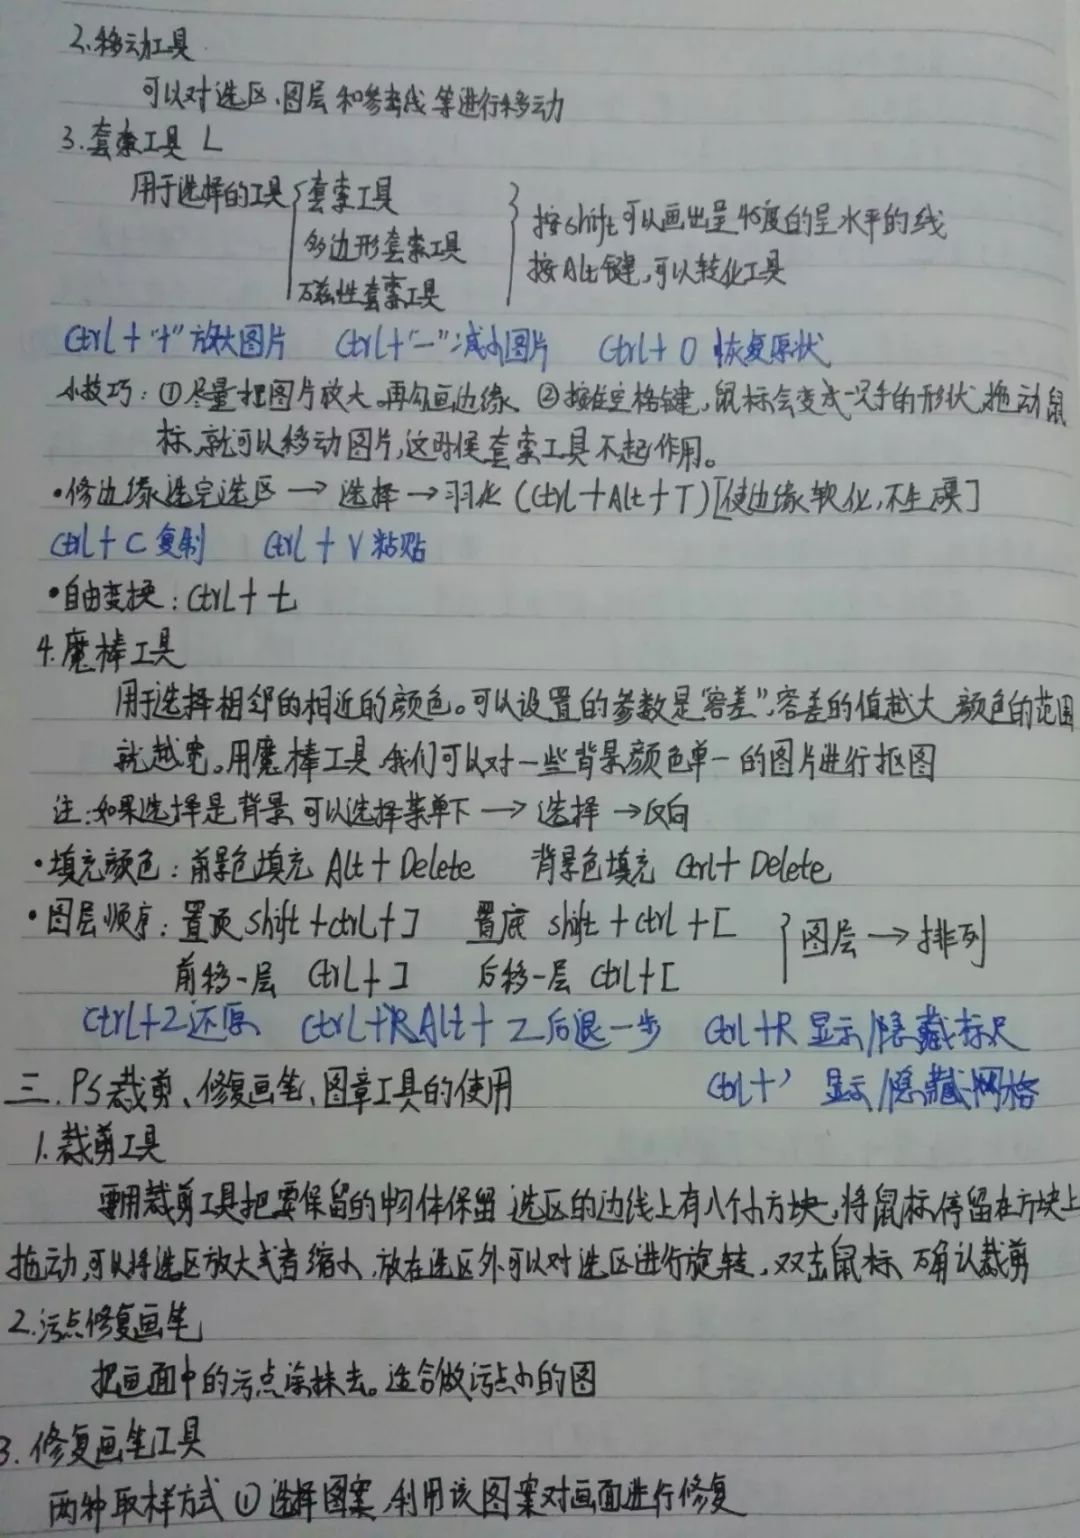 2.移动工具
可以对选区、图层和参考线等进行移动
3.套索工具 L
用于选择的工具 { 套索工具 } 按shift可以画出呈45度的呈水平的线
多边形套索工具 按Alt键,可以转化工具
磁性套索工具
Ctrl+"+"放大图片 Ctrl+"-"减小图片 Ctrl+0 恢复原状
小技巧:①尽量把图片放大。再勾画边缘、②按住空格键,鼠标会变成一只手的形状,拖动鼠
标,就可以移动图片,这时候套索工具不起作用。
·修边缘选完选区→选择→羽化(Ctrl+Alt+T)[使边缘软化,不生硬]
Ctrl+C复制 Ctrl+V粘贴
·自由变换:Ctrl+t
4.魔棒工具
用于选择相邻的相近的颜色。可以设置的参数是"容差",容差的值越大 颜色的范围
就越宽。用魔棒工具,我们可以对一些背景颜色单一的图片进行抠图
注:如果选择是背景 可以选择菜单下→选择→反向
·填充颜色:前景色填充 Alt+Delete 背景色填充 Ctrl+Delete
·图层顺序:置顶 shift+ctrl+] 置底 shift+ctrl+[ } 图层→排列
前移一层 Ctrl+] 后移一层 Ctrl+[
Ctrl+Z还原 Ctrl+R.Alt+Z后退一步 Ctrl+R 显示/隐藏标尺
三.PS裁剪、修复画笔、图章工具的使用 Ctrl+' 显示/隐藏网格
1.裁剪工具
要用裁剪工具把要保留的物体保留 选区的边线上有八个小方块,将鼠标停留在方块上
拖动,可以将选区放大或者缩小,放在选区外可以对选区进行旋转,双击鼠标 确认裁剪
2.污点修复画笔
把画面中的污点涂抹去。适合做污点小的图
3.修复画笔工具
两种取样方式①选择图案,利用该图案对画面进行修复